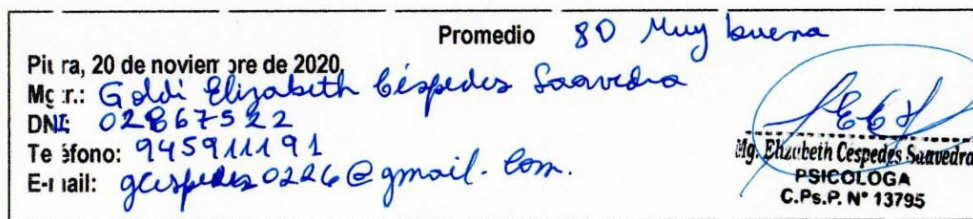 Promedio 80 Muy buena
Piura, 20 de noviembre de 2020.
Mgtr.: Goldi Elizabeth Céspedes Saavedra
DNI: 02867522
Teléfono: 945911191
E-mail: gcespedes0226@gmail.com.
Mg. Elizabeth Cespedes Saavedra
PSICOLOGA
C.Ps.P. N° 13795